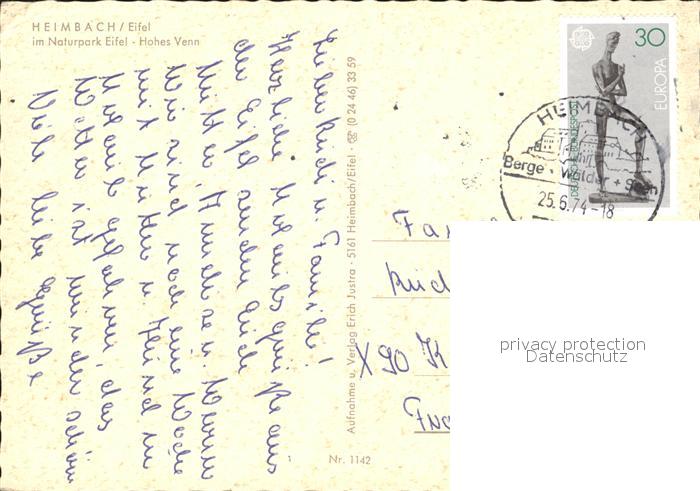 HEIMBACH / Eifel
im Naturpark Eifel - Hohes Venn
Lieber Rudi u. Familie!
Herzliche Urlaubsgrüße aus
der Eifel senden Euch
Mutter, u. Werner
Wir sind noch eine Woche
mit Mutter u. Heind in
Urlaub gefahren, das
Wetter ist wunderschön
Viele liebe Grüße
Aufnahme u. Verlag Erich Justra · 5161 Heimbach/Eifel · ☎ (0 24 46) 33 59
Nr. 1142
30
EUROPA
DEUTSCHE BUNDESPOST
HEIMBACH
Berge · Wälder + Seen
25.6.74-18
Fa
Rud
X90 K
privacy protection
Datenschutz